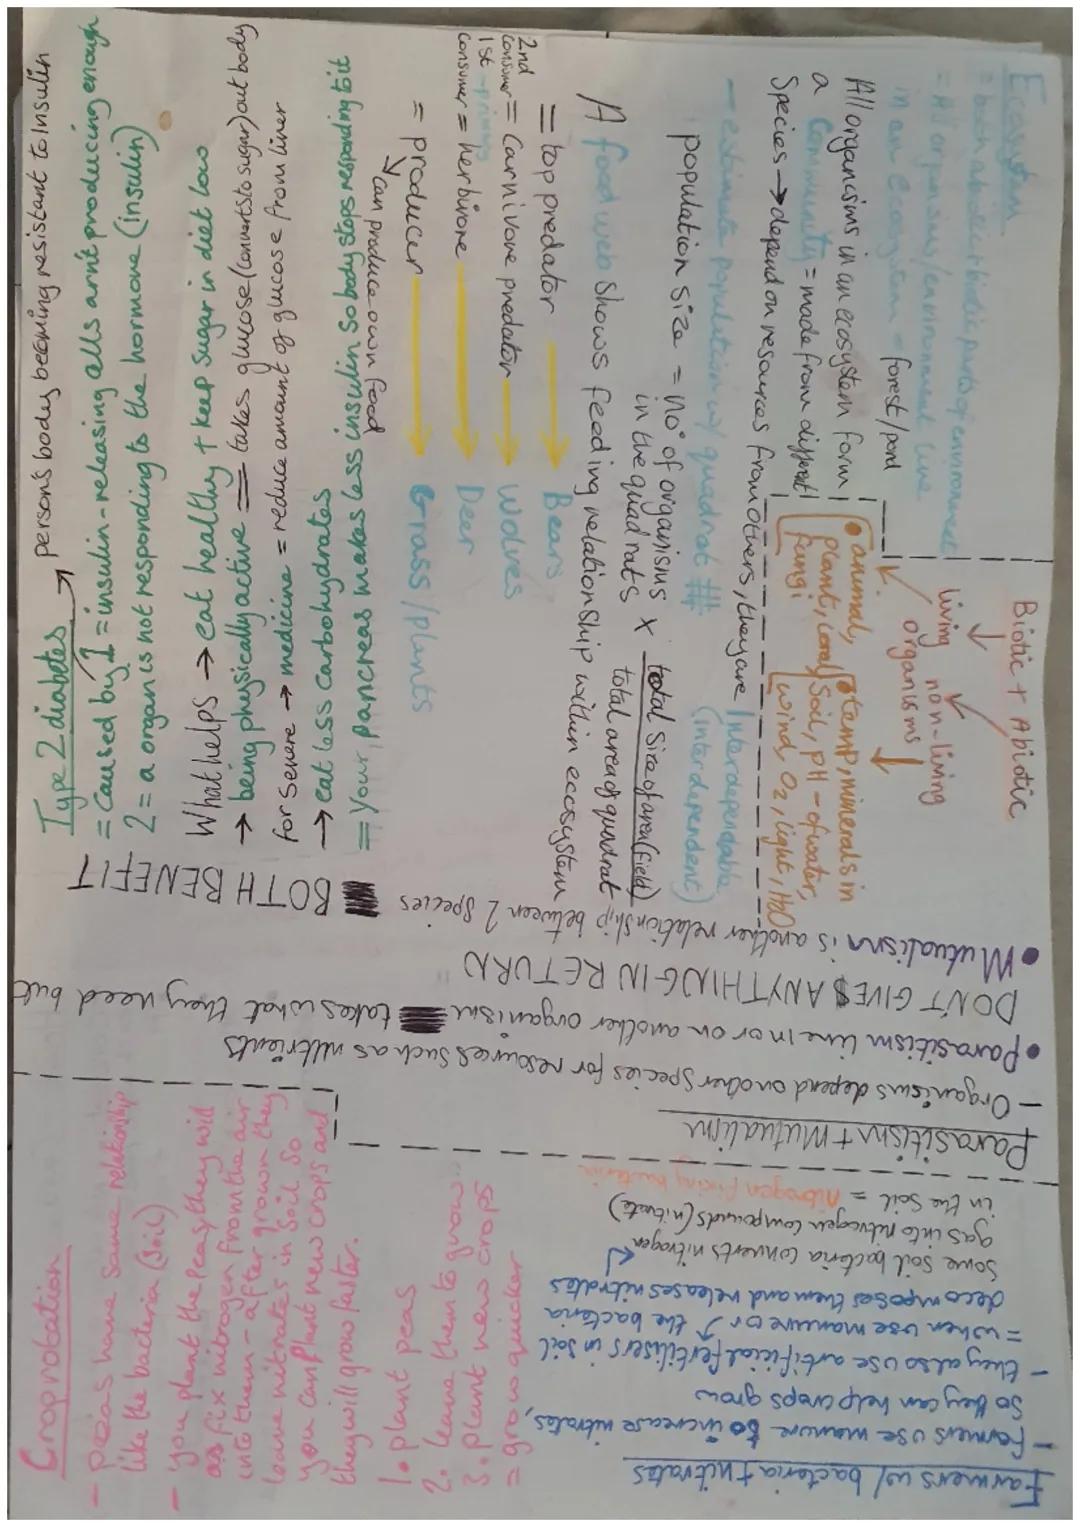 Ecosystem
= both abiotic + biotic parts of environment
= All organisms/environment live
in an ecosystem = forest/pond
All organisms in an ecosystem form
a Community = made from different
Species → depend on resources from others, they are Interdependable
(interdependent)
- estimate population w/ quadrat #
population size = no° of organisms in the quadrats x total size of area (field)
total area of quadrat
A food web shows feeding relationship within ecosystem
= top predator → Bears
2nd consumer = Carnivore predator → Wolves
1st - primary consumer = herbivore → Deer
= producer → Grass/plants
↳ can produce own food
Biotic + Abiotic
living non-living
organisms
• animal, plant, coral, fungi
• temp, minerals in
Soil, pH - of water,
wind, O2, light, H2O
= Your pancreas makes less insulin so body stops responding to it
→ eat less carbohydrates
for severe → medicine = reduce amount of glucose from liver
→ being physically active = takes glucose (converts to sugar) out body
What helps → eat healthy + keep sugar in diet low
2 = a organ is not responding to the hormone (insulin)
= Caused by 1 = insulin-releasing cells arn't producing enough
Type 2 diabetes → person's body becoming resistant to insulin
Parasitism + Mutualism
- Organisms depend another species for resources such as nutrients
• Parasitism live in or on another organism = takes what they need but
DON'T GIVES ANYTHING IN RETURN
• Mutualism is another relationship between 2 species
BOTH BENEFIT
Farmers w/ bacteria + nitrates
- farmers use manure to increase nitrates,
so they can help crops grow
- they also use artificial fertilisers in soil
= when use manure or the bacteria
decomposes them and releases nitrates
some soil bacteria converts nitrogen
gas into nitrogen compounds (nitrate)
in the soil = nitrogen fixing bacteria
Crop rotation
- peas have same relationship
like the bacteria (soil)
- you plant the peas they will
as fix nitrogen from the air
into them - after grown they
leave nitrates in soil so
you can plant new crops and
they will grow faster.
1. plant peas
2. leave them to grow
3. plant new crops
= grow quicker